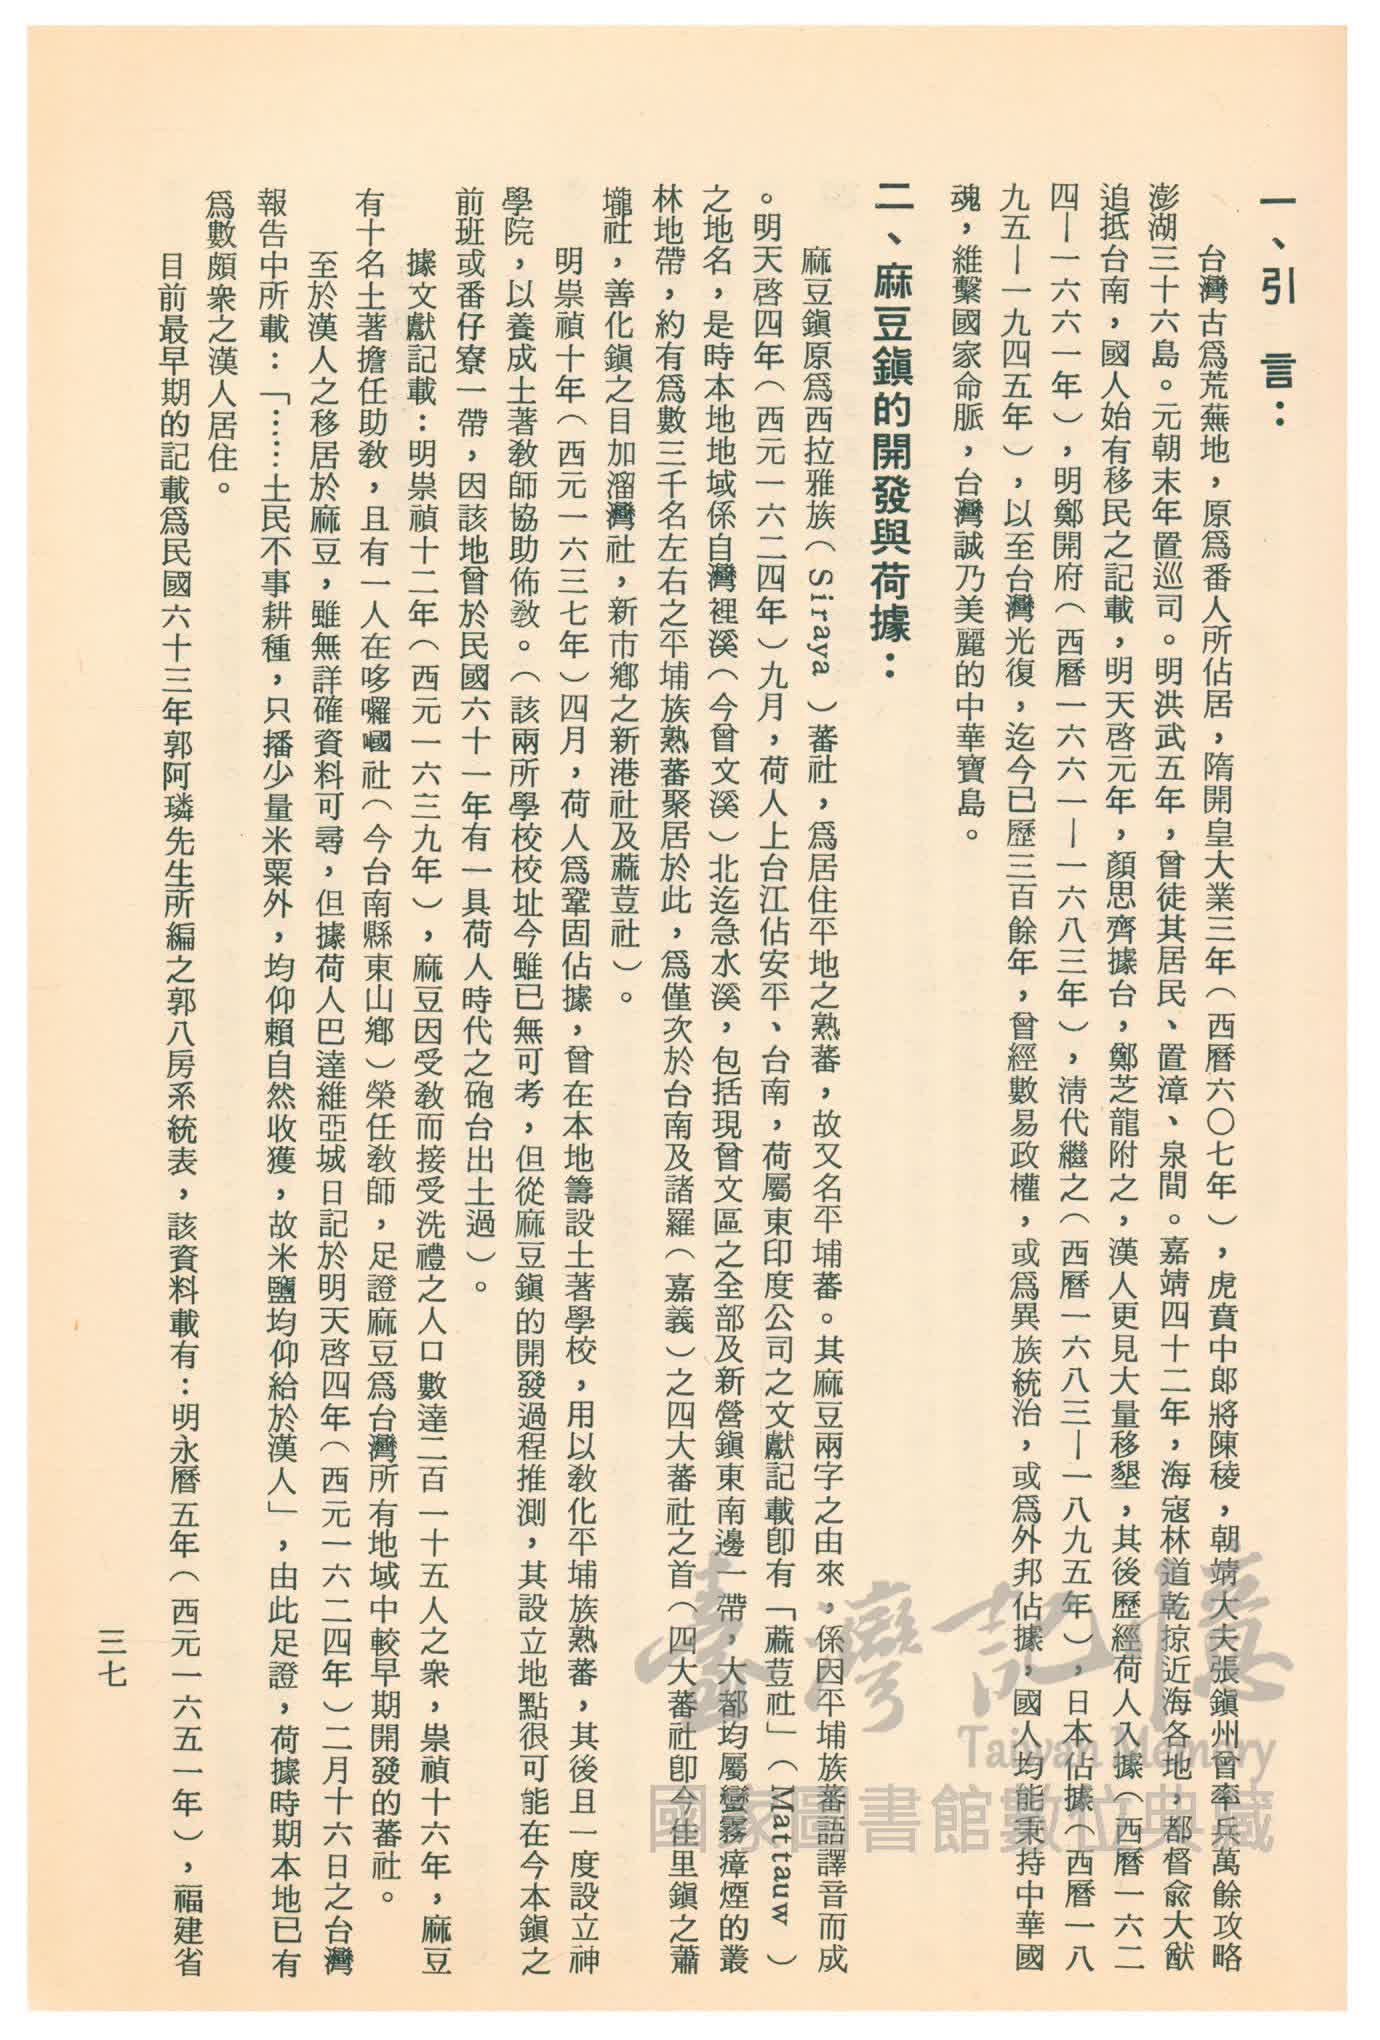 一、引　言：
台灣古爲荒蕪地，原爲番人所佔居，隋開皇大業三年（西曆六〇七年），虎賁中郎將陳稜，朝靖大夫張鎭州曾率兵萬餘攻略
澎湖三十六島。元朝末年置巡司。明洪武五年，曾徒其居民、置漳、泉間。嘉靖四十二年，海寇林道乾掠近海各地，都督兪大猷
追抵台南，國人始有移民之記載，明天啓元年，顏思齊據台，鄭芝龍附之，漢人更見大量移墾，其後歷經荷人入據（西曆一六二
四—一六六一年），明鄭開府（西曆一六六一—一六八三年），淸代繼之（西曆一六八三—一八九五年），日本佔據（西曆一八
九五—一九四五年），以至台灣光復，迄今已歷三百餘年，曾經數易政權，或爲異族統治，或爲外邦佔據，國人均能秉持中華國
魂，維繫國家命脈，台灣誠乃美麗的中華寶島。
二、麻豆鎭的開發與荷據：
麻豆鎭原爲西拉雅族（Siraya）蕃社，爲居住平地之熟蕃，故又名平埔蕃。其麻豆兩字之由來，係因平埔族蕃語譯音而成
。明天啓四年（西元一六二四年）九月，荷人上台江佔安平、台南，荷屬東印度公司之文獻記載卽有「蔴荳社」（Mattauw）
之地名，是時本地地域係自灣裡溪（今曾文溪）北迄急水溪，包括現曾文區之全部及新營鎭東南邊一帶，大都均屬蠻霧瘴煙的叢
林地帶，約有爲數三千名左右之平埔族熟蕃聚居於此，爲僅次於台南及諸羅（嘉義）之四大蕃社之首（四大蕃社卽今佳里鎭之蕭
壠社，善化鎭之目加溜灣社，新市鄉之新港社及蔴荳社）。
明祟禎十年（西元一六三七年）四月，荷人爲鞏固佔據，曾在本地籌設土著學校，用以敎化平埔族熟蕃，其後且一度設立神
學院，以養成土著敎師協助佈敎。（該兩所學校校址今雖已無可考，但從麻豆鎭的開發過程推測，其設立地點很可能在今本鎭之
前班或番仔寮一帶，因該地曾於民國六十一年有一具荷人時代之砲台出土過）。
據文獻記載：明祟禎十二年（西元一六三九年），麻豆因受敎而接受洗禮之人口數達二百一十五人之衆，祟禎十六年，麻豆
有十名土著擔任助敎，且有一人在哆囉嘓社（今台南縣東山鄉）榮任敎師，足證麻豆爲台灣所有地域中較早期開發的蕃社。
至於漢人之移居於麻豆，雖無詳確資料可尋，但據荷人巴達維亞城日記於明天啓四年（西元一六二四年）二月十六日之台灣
報告中所載：「……土民不事耕種，只播少量米粟外，均仰賴自然收獲，故米鹽均仰給於漢人」，由此足證，荷據時期本地已有
爲數頗衆之漢人居住。
目前最早期的記載爲民國六十三年郭阿璘先生所編之郭八房系統表，該資料載有：明永曆五年（西元一六五一年），福建省
三七
臺灣記憶
Taiwan Memory
國家圖書館數位典藏